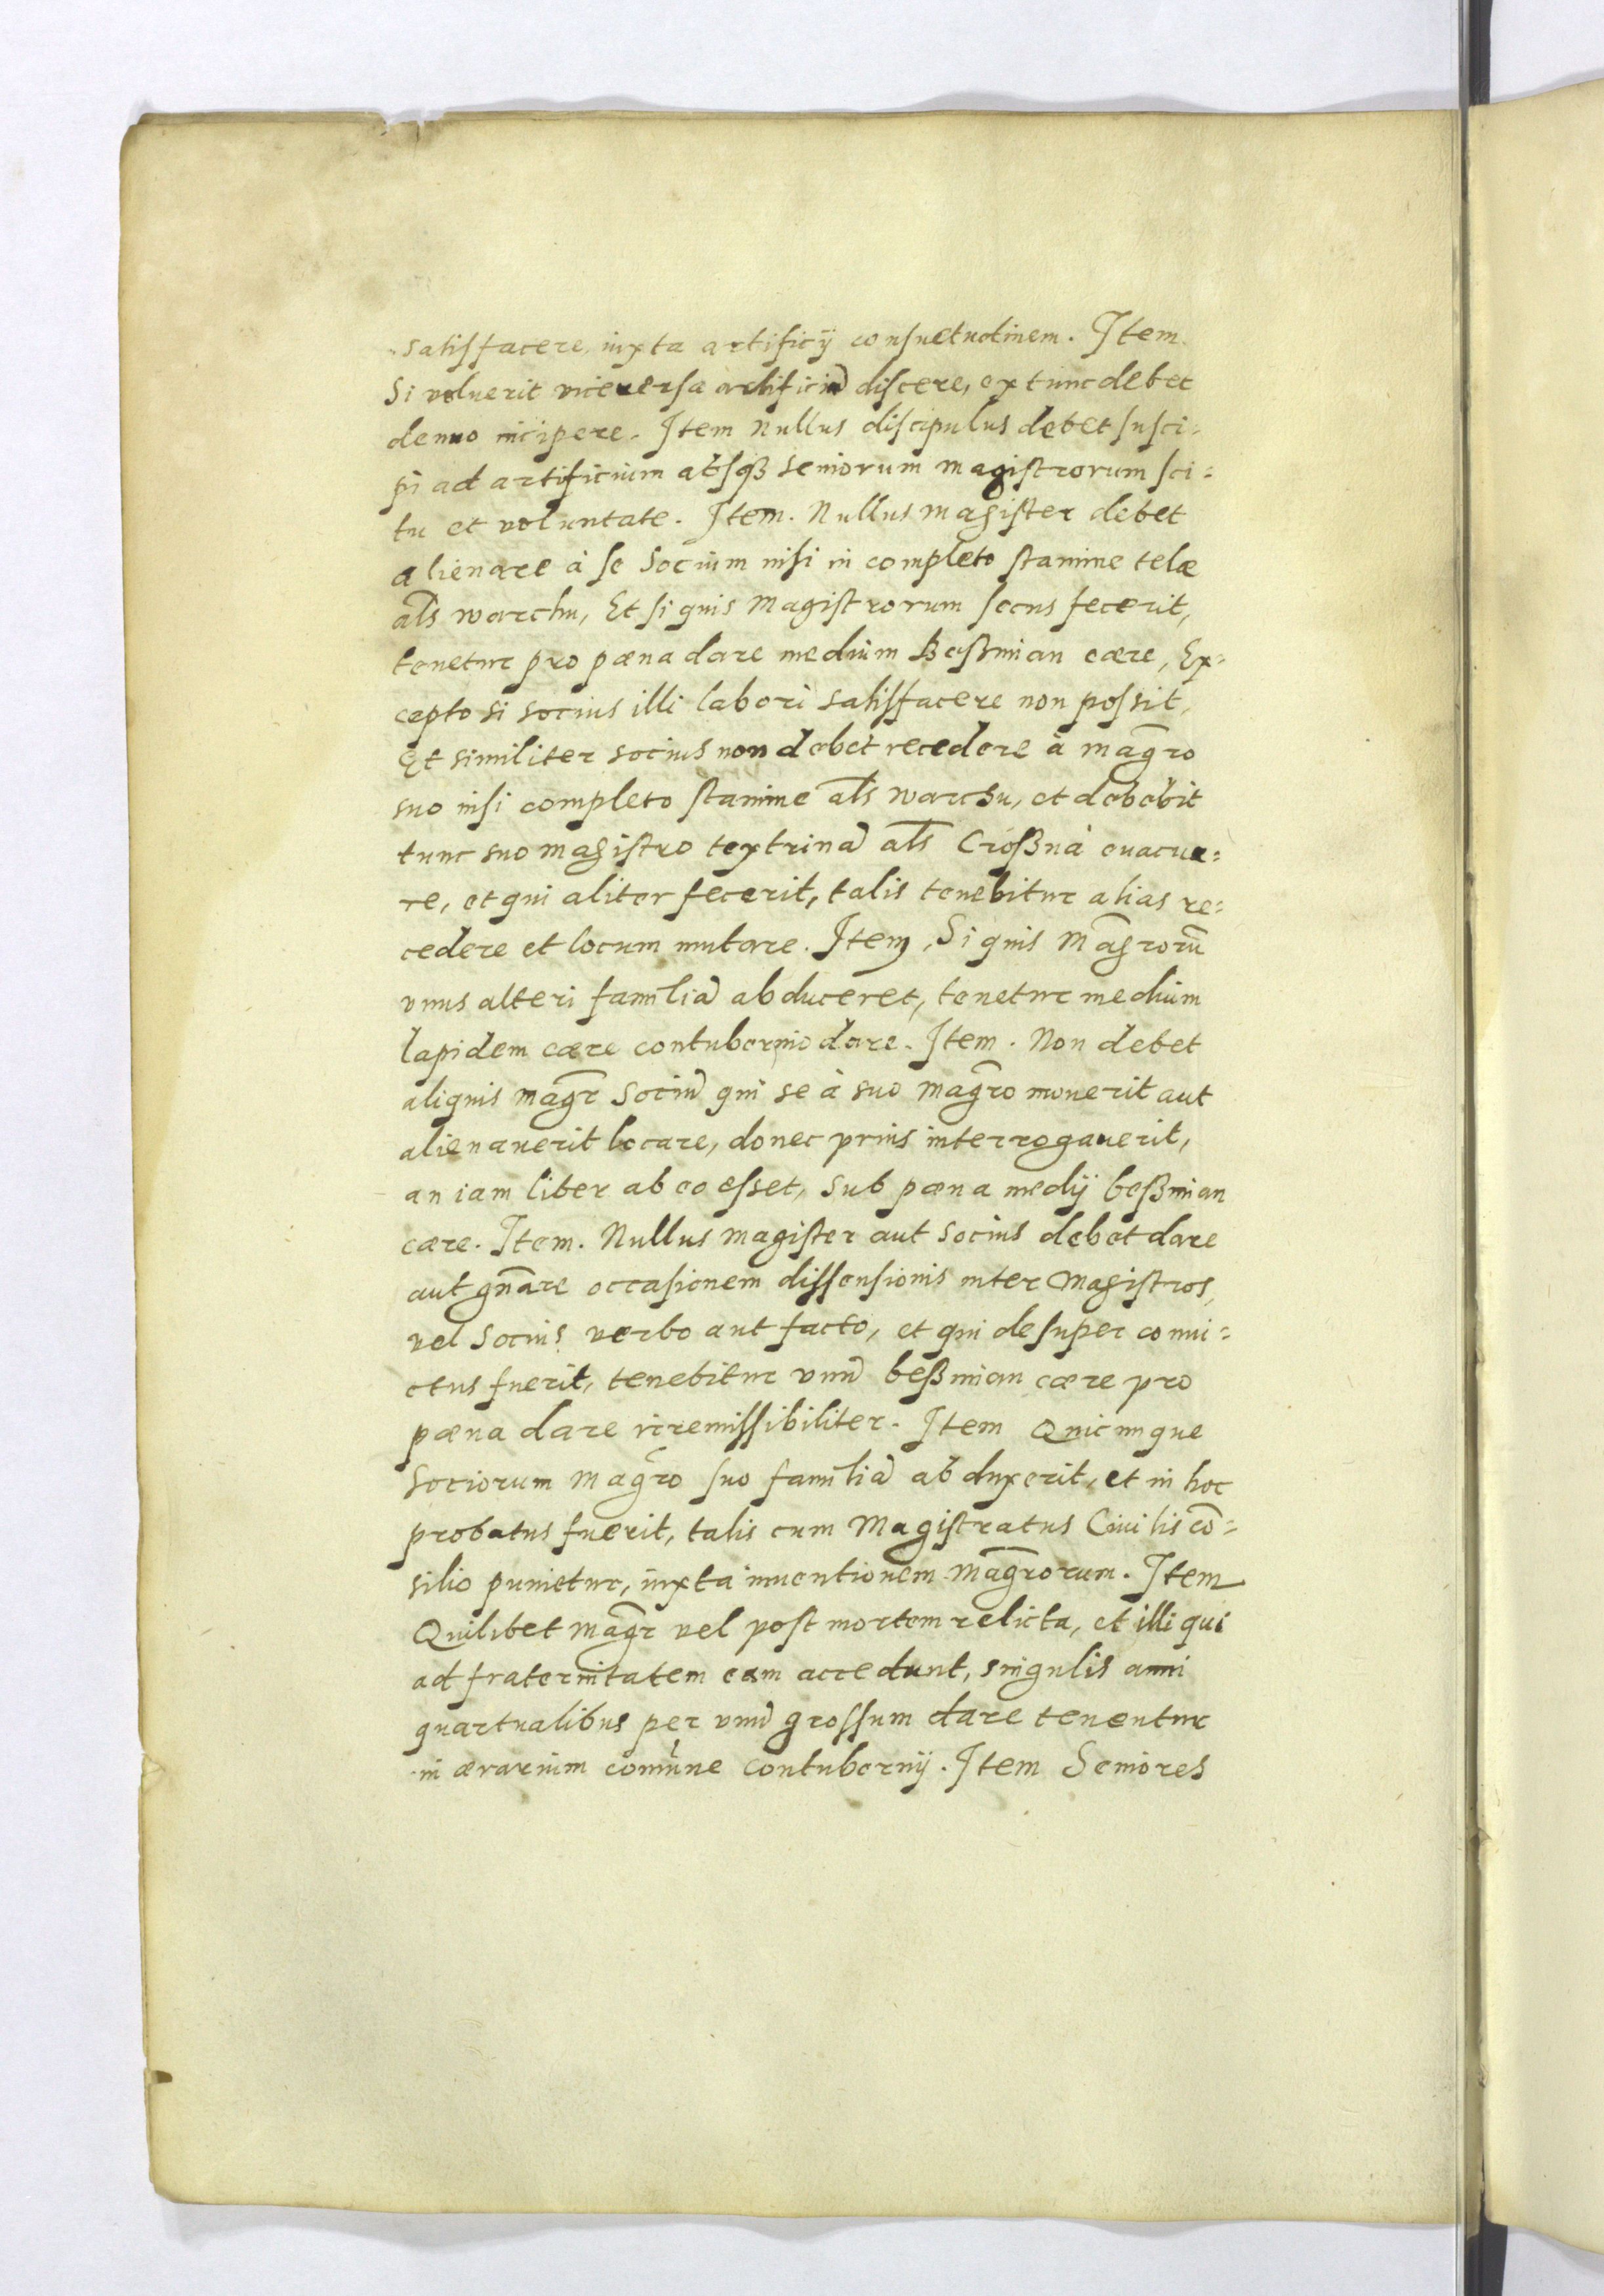 satisfacere, iuxta artificij consuetudinem. Item
Si voluerit viceversa artificiū discere, ex tunc debet
denuo incipere. Item Nullus discipulus debet susci-
pi ad artificium absqꝫ seniorum magistrorum sci-
tu et voluntate. Item. Nullus magister debet
alienare à se Socium nisi in completo stamine telæ
al̄s warchu, Et si quis Magistrorum secus fecerit,
tenetur pro pæna dare medium Beßmian cære, Ex-
cepto si socius illi labori satisfacere non possit,
Et similiter socius non debet recedere à mag̃ro
suo nisi completo stamine al̄s warchu, et debebit
tunc suo magistro textrinā al̄s Croßnà euacua-
re, et qui aliter fecerit, talis tenebitur alias re-
cedere et locum mutare. Item, Si quis Mag̃rorū
vnus alteri familiā abduceret, tenetur medium
lapidem cære contubernio dare. Item. Non debet
aliquis mag̃r Sociū qui se à suo mag̃ro mouerit aut
alienauerit locare, donec prius interrogauerit,
an iam liber ab eo esset, sub pæna medij beßmian
cære. Item. Nullus magister aut socius debet dare
aut gn̄are occasionem dissensionis inter Magistros,
vel Socius verbo aut facto, et qui desuper conui-
ctus fuerit, tenebitur vnū beßmian cære pro
pæna dare irremissibiliter. Item Quicunque
Sociorum mag̃ro suo familiā abduxerit, et in hoc
probatus fuerit, talis cum Magistratus Ciuilis cō-
silio punietur, iuxta inuentionem mag̃rorum. Item
Quilibet mag̃r vel post mortem relicta, et illi qui
ad fraternitatem eam accedunt, singulis anni
quartualibus per vnū grossum dare tenentur
in ærarium comūne contubernij. Item Seniores